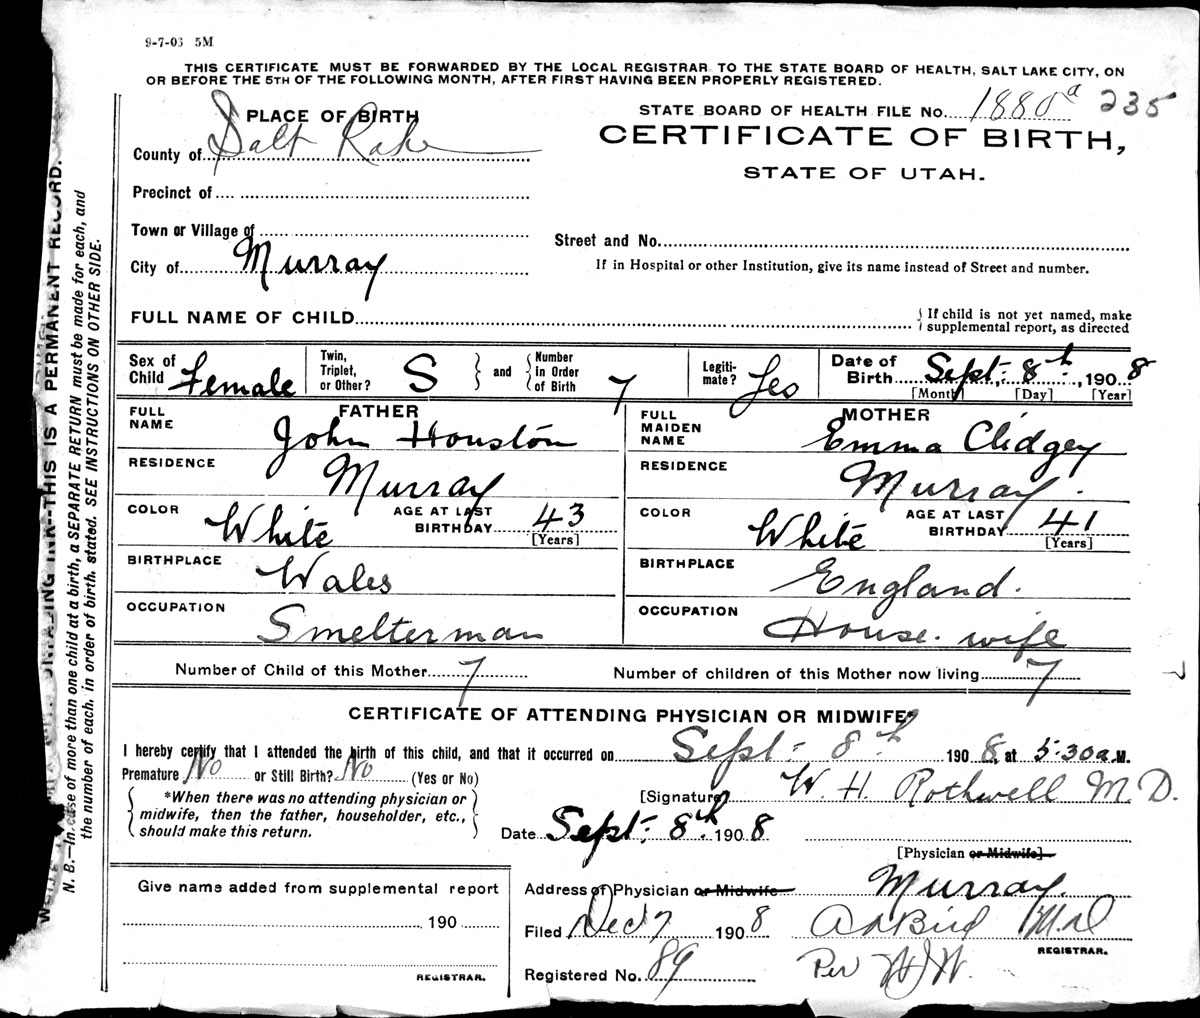 9-7-03 5M
THIS CERTIFICATE MUST BE FORWARDED BY THE LOCAL REGISTRAR TO THE STATE BOARD OF HEALTH, SALT LAKE CITY, ON
OR BEFORE THE 5TH OF THE FOLLOWING MONTH, AFTER FIRST HAVING BEEN PROPERLY REGISTERED.
PLACE OF BIRTH
County of Salt Lake
Precinct of
Town or Village of
City of Murray
STATE BOARD OF HEALTH FILE No. 1880 a 235
CERTIFICATE OF BIRTH,
STATE OF UTAH.
Street and No.
If in Hospital or other Institution, give its name instead of Street and number.
FULL NAME OF CHILD
If child is not yet named, make
supplemental report, as directed
Sex of Child Female
Twin, Triplet, or Other? S
and
Number in Order of Birth 7
Legiti-mate? Yes
Date of Birth Sept. 8th, 1908
[Month] [Day] [Year]
FATHER
FULL NAME John Houston
RESIDENCE Murray
COLOR White AGE AT LAST BIRTHDAY 43
[Years]
BIRTHPLACE Wales
OCCUPATION Smelterman
MOTHER
FULL MAIDEN NAME Emma Clidgey
RESIDENCE Murray.
COLOR White AGE AT LAST BIRTHDAY 41
[Years]
BIRTHPLACE England.
OCCUPATION House-wife
Number of Child of this Mother 7 Number of children of this Mother now living 7
CERTIFICATE OF ATTENDING PHYSICIAN OR MIDWIFE*
I hereby certify that I attended the birth of this child, and that it occurred on Sept. 8th 1908, at 5:30 a.M.
Premature No or Still Birth? No (Yes or No)
*When there was no attending physician or
midwife, then the father, householder, etc.,
should make this return.
[Signature] W. H. Rothwell M.D.
Date Sept. 8th. 1908
[Physician or Midwife]
Give name added from supplemental report
190
REGISTRAR.
Address of Physician or Midwife Murray.
Filed Dec 7 1908
REGISTRAR.
Registered No. 89 Per
N. B.—In case of more than one child at a birth, a SEPARATE RETURN must be made for each, and
the number of each, in order of birth, stated. SEE INSTRUCTIONS ON OTHER SIDE.
UNFADING INK--THIS IS A PERMANENT RECORD.